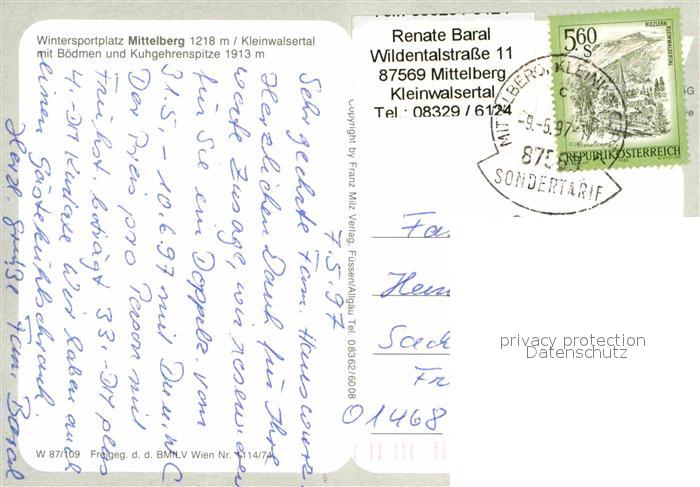 Wintersportplatz Mittelberg 1218 m / Kleinwalsertal
mit Bödmen und Kuhgehrenspitze 1913 m
Renate Baral
Wildentalstraße 11
87569 Mittelberg
Kleinwalsertal
Tel.: 08329 / 6124
RIEZLERN
KLEINWALSERTAL
5.60
S
REPUBLIK ÖSTERREICH
MITTELBERG, KLEINWALSERTAL
-9.-5.97-
SONDERTARIF
7.5.97
Sehr geehrte Fam.
Herzlichen Dank für Ihre
werte Zusage, wir reservieren
für Sie ein Doppelz. vom
31.5. - 10.6.97 mit Du u. WC
Der Preis pro Person mit
Frühst. beträgt 33.- DM plus
4.- DM Kurtaxe Wir haben auch
einen Gästekühlschrank.
Herzl. Grüße Fam. Baral
Copyright by Franz Milz Verlag, Füssen/Allgäu Tel. 08362/6008
01468
privacy protection
Datenschutz
W 87/109 Freigeg. d. d. BMfLV Wien Nr. 1114/74